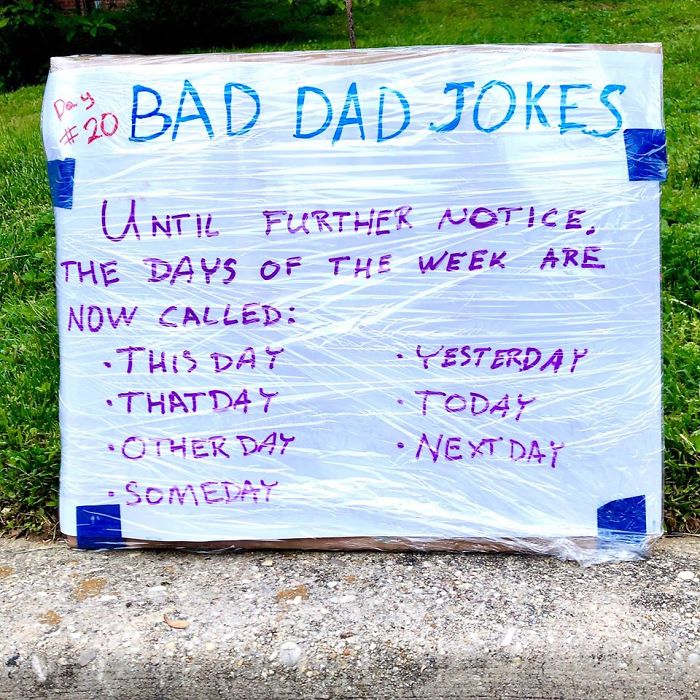 Day
#20
BAD DAD JOKES
UNTIL FURTHER NOTICE,
THE DAYS OF THE WEEK ARE
NOW CALLED:
• THISDAY
• THATDAY
• OTHERDAY
• SOMEDAY
• YESTERDAY
• TODAY
• NEXTDAY